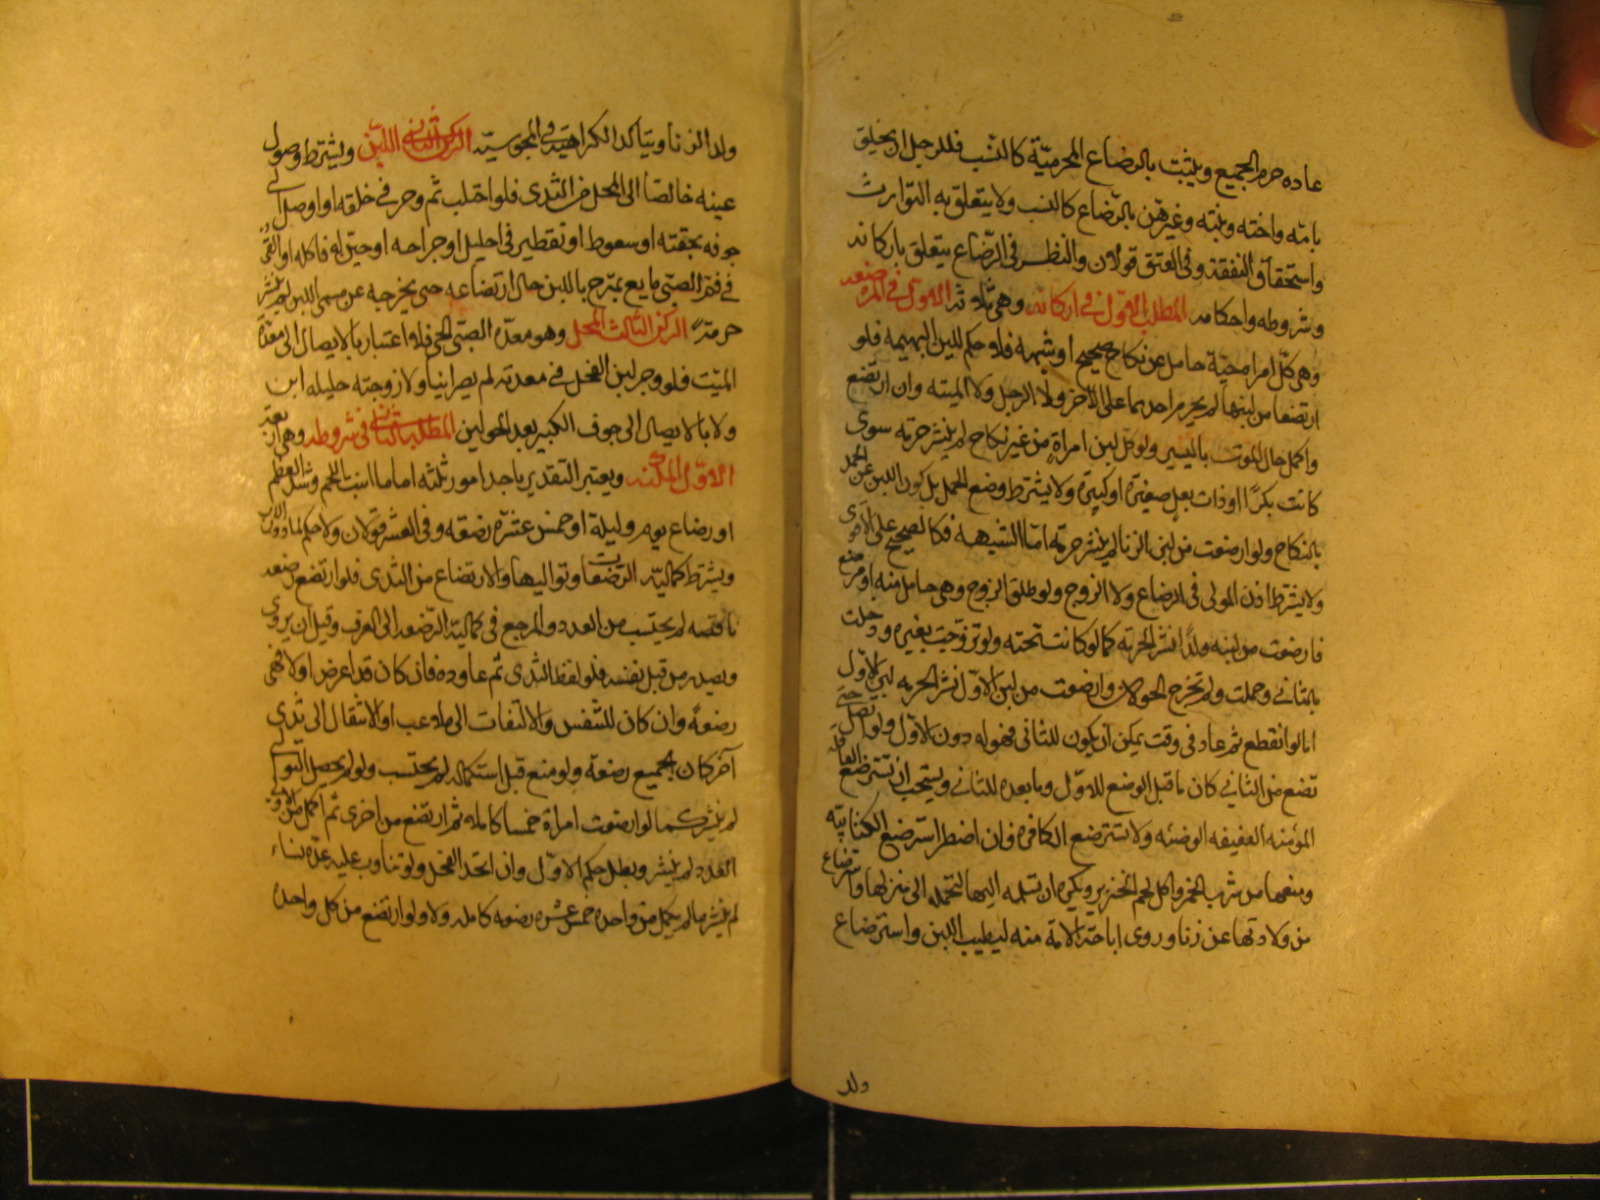 عاده حرم الجميع ويثبت بالرضاع المحرميّة كالنسب فللرجل ان يخلو
بامّه واخته وبنته وغيرهنّ بالرّضاع كالنسب ولا يتعلق به التوارث
واستحقاق النفقة وفى العتق قولان والنظر فى الرّضاع يتعلق باركانه
وشروطه واحكامه المطلب الاوّل فى اركانه وهى ثلاثة الاول فى المرضعه
وهى كلّ امراه حيّة حامل عن نكاح صحيح او شبهه فلا حكم للبن البهيمه فلو
ارتضعا من لبنها لم يحرم احدهما على الآخر ولا الرجل ولا الميته وان ارتضع
واكمل حال الموت باليسير ولو كل لبن امراة من غير نكاح لم ينشر حرمة سوى
كانت بكرًا او ذات بعل صغيرة او كبيرة ولا يشترط وضع الحمل بل كون اللبن عن الحمل
بالنكاح ولو ارضعت من لبن الزنا لم ينشر حرمة امّا الشبهه فكالصحيح على الاقوى
ولا يشترط اذن المولى فى الرضاع ولا الزوج ولو طلق الزوج وهى حامل منه او مرضع
فارضعت من لبنه ولدًا انشر الحرمة كما لو كانت تحته ولو تزوّجت بغيره ودخلت
بالثانى وحملت ولم تخرج الحولان وارضعت من لبن الاوّل نشر الحرمه لبن الاوّل
امّا لو انقطع ثم عاد فى وقت يمكن ان يكون للثانى فهو له دون الاوّل ولو اتصل حتى
تضع من الثانى كان ما قبل الوضع للاوّل وما بعده للثانى ويستحب ان تسترضع العاقلة
المؤمنه العفيفه الوضئه ولا تسترضع الكافره فان اضطر استرضع الكتابيّه
ومنعها من شرب الخمر واكل لحم الخنزير ويكره ان تسلمه اليها لتحمله الى منزلها واسترضاع
من ولادتها عن زنا وروى اباحة الامة منه ليطيب اللبن واسترضاع
ولد
ولد الزنا ويتاكد الكراهية فى المجوسيّه الركن الثانى اللبن ويشترط وصول
عينه خالصًا الى المحل من الثدى فلو احتلب ثم وجر فى حلقه او اوصل الى
جوفه بحقنته او سعوط او تقطير فى احليل او جراحه او جبّن له فاكله او القى
فى فم الصبّى مايع يمتزج باللبن حال ارتضاعه حتى يخرجه عن مسمى اللبن لم ينشر
حرمةً الركن الثالث المحل وهو معدة الصبّى الحى فلا اعتبار بالايصال الى معدة
الميّت فلو وجر لبن الفحل فى معدته لم يصر ابنا ولا زوجته حليلة ابن
ولا بالايصال الى جوف الكبير بعد الحولين المطلب الثانى فى شروطه وهى اربعة
الاوّل الكميّه ويعتبر التقدير باحد امور ثلثه اما ما انبت اللحم وشد العظم
او رضاع يوم وليلة او خمس عشرة رضعه وفى العشر قولان ولا حكم لما دون
ويشترط كماليّه الرضعات وتواليها والارتضاع من الثدى فلو ارتضع رضعه
ناقصه لم يحتسب من العدد والمرجع فى كماليّة الرّضعه الى العرف وقيل ان يروى
ويصدر من قبل نفسه فلو لفظ الثدى ثم عاوده فان كان قد اعرض اولا فهى
رضعة وان كان للتنفس والالتفات الى ملاعب او الانتقال الى ثدى
آخر كان الجميع رضعة ولو منع قبل استكماله لم يحتسب ولو لم يحصل التوالى
لم ينشر كما لو ارضعت امراة خمسا كامله ثم ارتضع من اخرى ثم اكمل من الاولى
العدد لم ينشر وبطل حكم الاوّل وان اتحد الفحل ولو تناوب عليه عدّه نساء
لم ينشر ما لم يكمل من واحده خمس عشره رضعه كامله ولاء ولو ارتضع من كل واحده